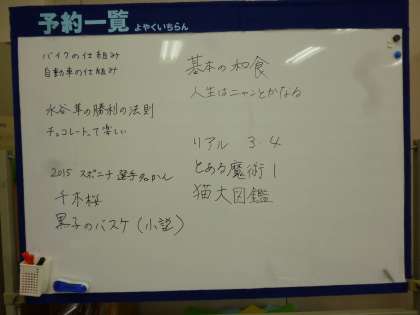 予約一覧 よやくいちらん
バイクの仕組み
自動車の仕組み
水谷隼の勝利の法則
チョコレートで楽しい
2015 スポニチ 選手名かん
千本桜
黒子のバスケ(小説)
基本の和食
人生はニャンとかなる
リアル 3・4
とある魔術 1
猫大図鑑